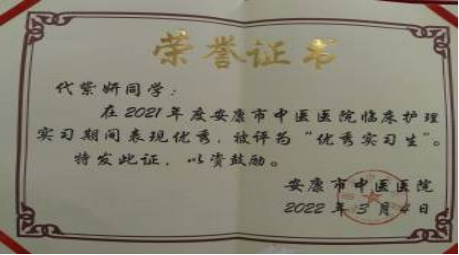 荣誉证书
代紫妍同学：
在2021年度安康市中医医院临床护理
实习期间表现优秀，被评为“优秀实习生”。
特发此证，以资鼓励。
安康市中医医院
2022年3月4日